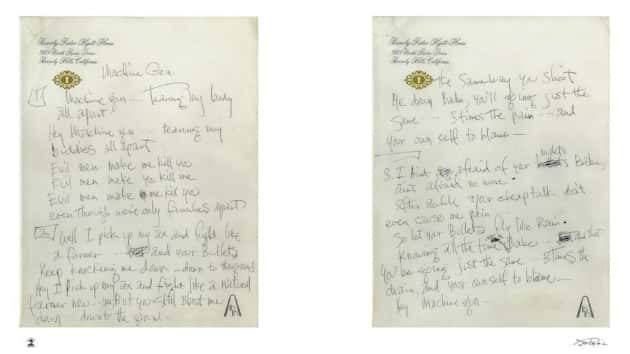 Beverly Rodeo Hyatt House
360 North Rodeo Drive
Beverly Hills, California
Machine Gun
1
Machine gun ... Tearing my body
all apart
Hey Machine gun tearing my
bodies all apart
Evil men make me kill you
Evil men make you kill me
Evil men make me kill you
even though we're only families apart
2
Well I pick up my axe and fight like
a farmer and your Bullets
Keep knocking me down down to the ground
Hey I Pick up my axe and fight like a
farmer now but you still shoot me
down down to the ground
Beverly Rodeo Hyatt House
360 North Rodeo Drive
Beverly Hills, California
the Same way you shoot
Me down Babe, you'll going just the
same ... 3 times the pain and
your own self to blame
3. I Ain't afraid of your Babe,
ain't afraid no more
After awhile your cheap talk don't
even cause me pain
So let your Bullets fly like Rain
Knowing all the time Babe
You're going just the same 3 times the
and your own self to blame
hey Machine gun